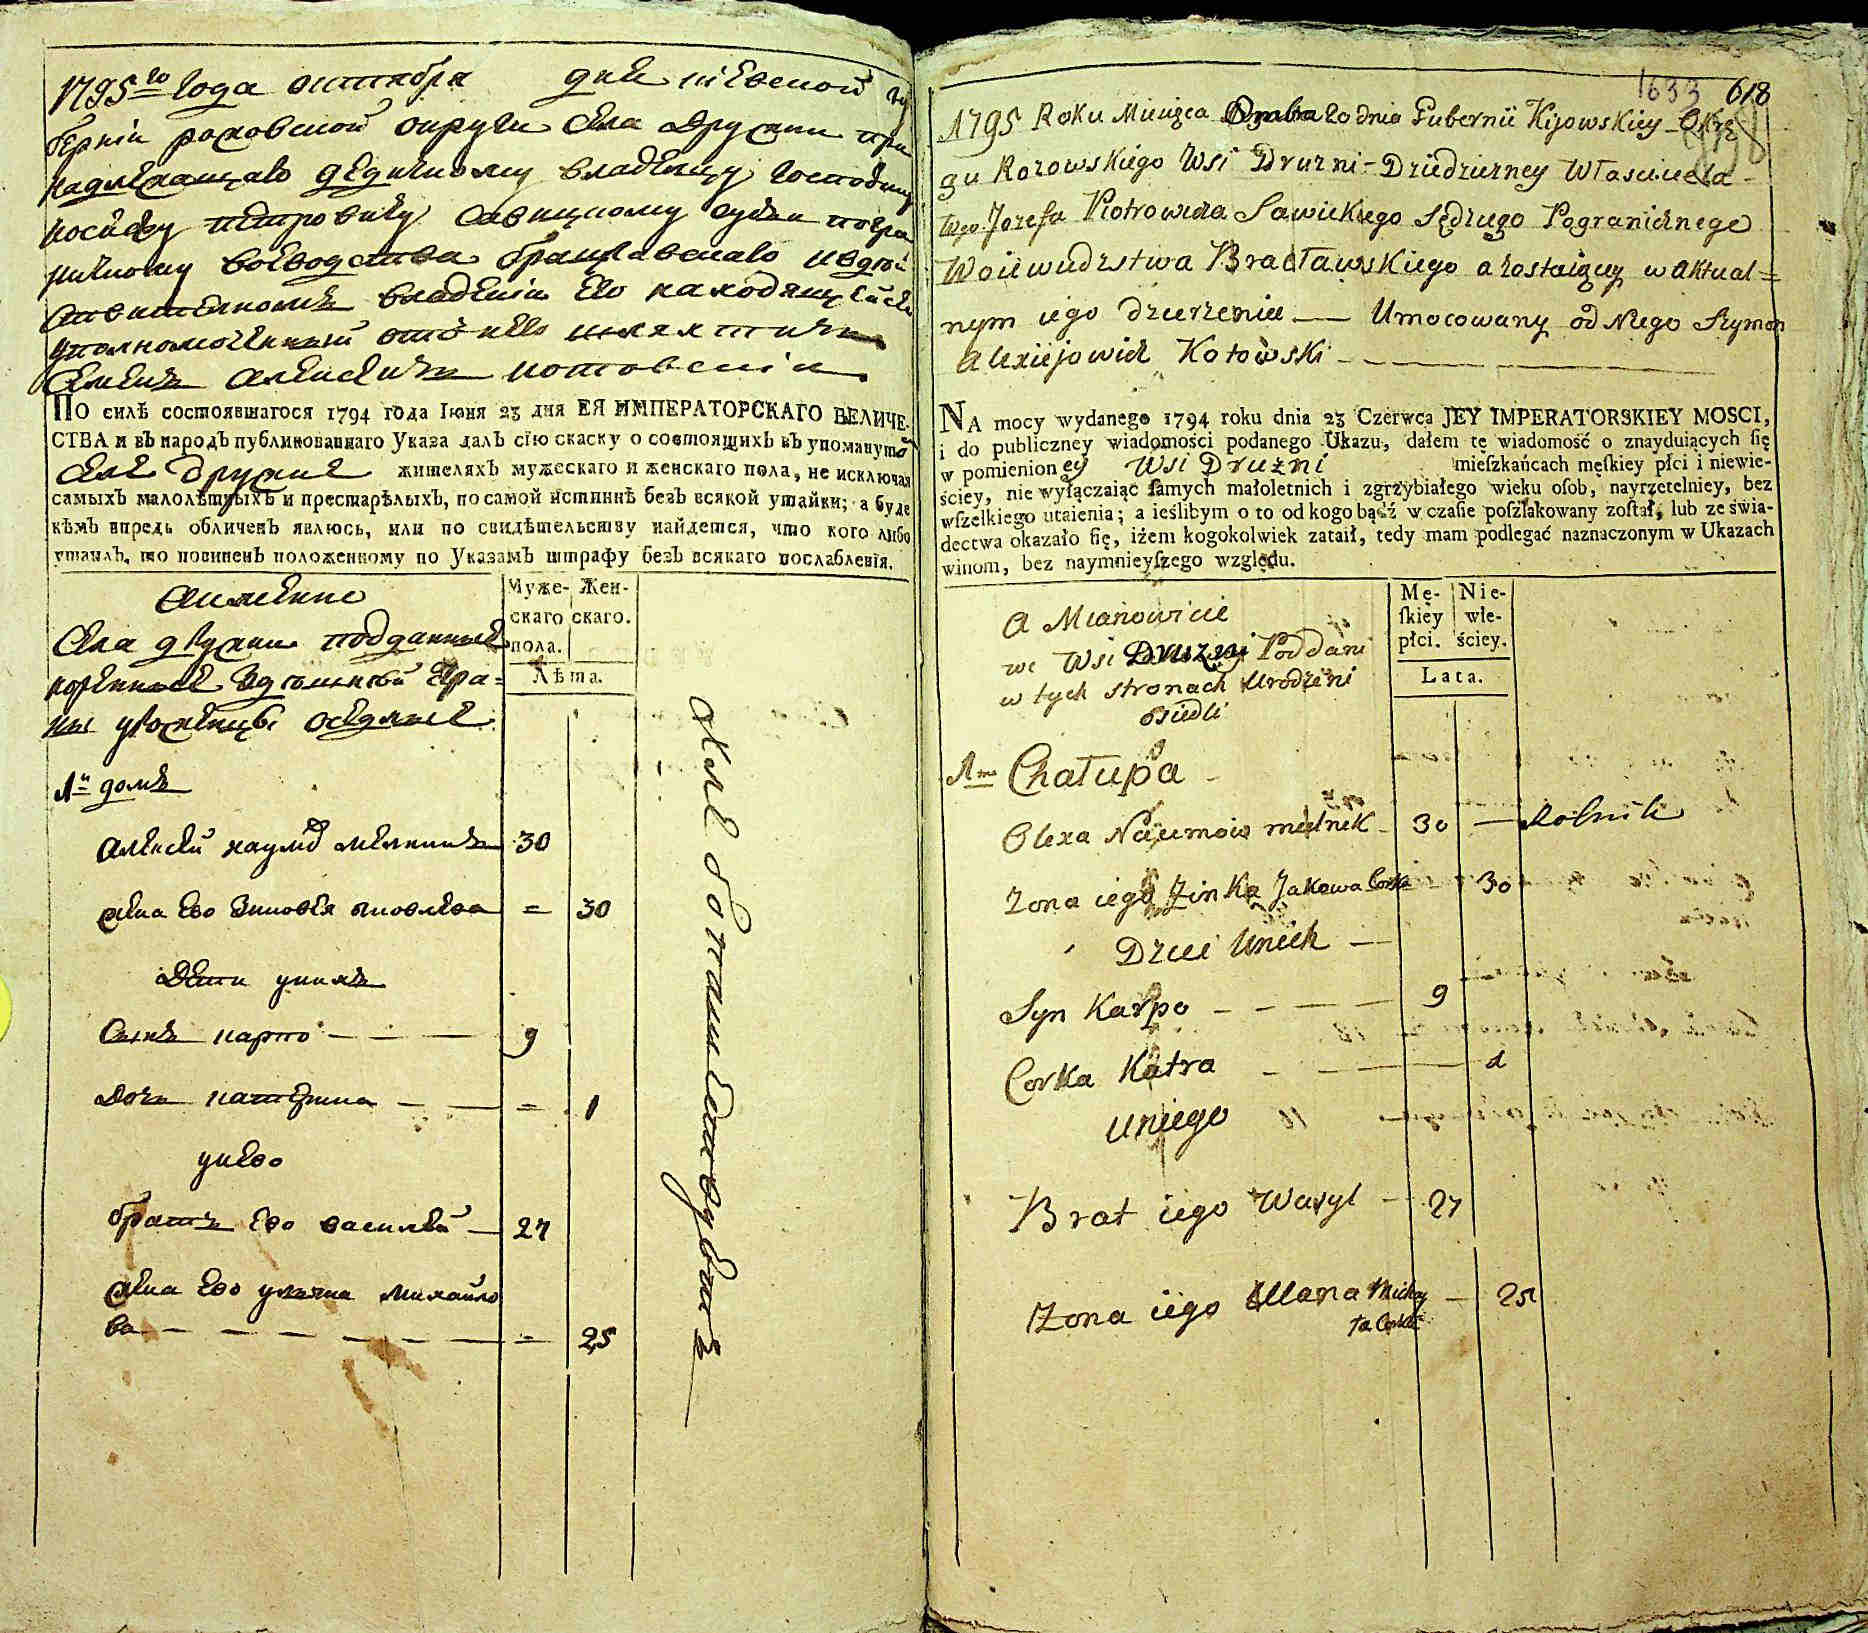 1795го Года октября дня киевской гу
берніи роховской округи Села Дружни при
надлежащаго дедичному владельцу Господину
иосифу петровичу савицкому судьи погра
ничному воеводства брацлавскаго и в дей
ствителномъ владеніи Его находящейся
уполномоченный отъ него шляхтичъ
Семенъ алексеевичъ котовскій
ПО силѣ состоявшагося 1794 года Іюня 23 дня ЕЯ ИМПЕРАТОРСКАГО ВЕЛИЧЕ-
СТВА и въ народъ публикованнаго Указа далъ сїю скаску о состоящихъ въ упомянутой
Селе дружне жителяхъ мужескаго и женскаго пола, не исключая
самыхъ малолѣтныхъ и престарѣлыхъ, по самой истиннѣ безъ всякой утайки; а буде
кѣмъ впредь обличенъ явлюсь, или по свидѣтельству найдется, что кого либо
утаилъ, то повиненъ положенному по Указамъ штрафу безъ всякаго послабленія.
а именно
Села дружни подданные
коренные здешней стра=
ны уроженцы оседлые
Муже-
скаго
пола.
Жен-
скаго.
Лѣта.
1й домъ
алексей наумов мелникъ 30
жена Его зиновея яковлева = 30
Дети у нихъ
Сынъ карпо — — — 9
Дочь катерина — — = 1
у него
братъ Его василей — 27
жена Его уляна михайло
ва — — — — — — = 25
хлебопашествуетъ
1633 618
1795 Roku Miesięca 8ctobra 20 dnia Gubernii Kijowskiey Okrę
gu Rozowskiego Wsi Drużni - Dziedziczney Właściciela
Wgo Jozefa Piotrowicza Sawickiego Sędziego Pogranicznego
Woiewudztwa Bracławskiego a zostaiącey w aktual=
nym iego dzierżeniu — Umocowany od Niego Szymon
Alexiejowicz Kotowski — — — —
NA mocy wydanego 1794 roku dnia 23 Czerwca JEY IMPERATORSKIEY MOSCI,
i do publiczney wiadomości podanego Ukazu, dałem tę wiadomość o znayduiących ſię
w pomienioney Wsi Drużni mieſzkańcach męſkiey płci i niewie-
ściey, nie wyłączaiąc ſamych małoletnich i zgrzybiałego wieku oſob, nayrzetelniey, bez
wſzelkiego utaienia; a ieślibym o to od kogo bądź w czaſie poſzlakowany zoſtał, lub ze świa-
dectwa okazało ſię, iżem kogokolwiek zataił, tedy mam podlegać naznaczonym w Ukazach
winom, bez naymnieyſzego względu.
A Mianowicie
we Wsi Drużni Poddani
w tych stronach Urodzeni
osiedli
Mę-
ſkiey
płci.
Nie-
wie-
ściey.
Lata.
1ma Chałupa
Olexa Naumow mielnik — 30 — Rolnik
Zona iego Zinka Jakowa Corka 30
Dzieci Unich —
Syn Karpo — — — — 9
Corka Katra — — — 1
Uniego
Brat iego Wasyl — 27
Zona iego Ulana Michay
ła Corka — 25